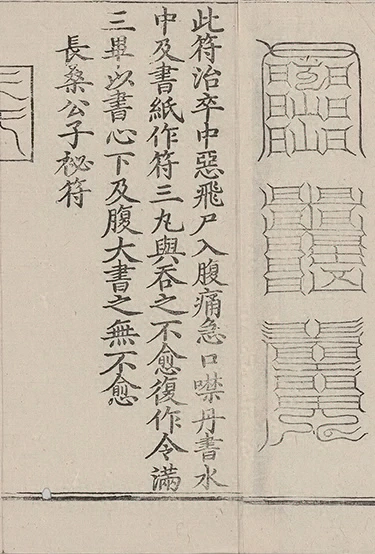 此符治卒中惡飛尸入腹痛急口噤丹書水
中及書紙作符三丸與吞之不愈復作令滿
三畢必書心下及腹大書之無不愈
長桑公子秘符